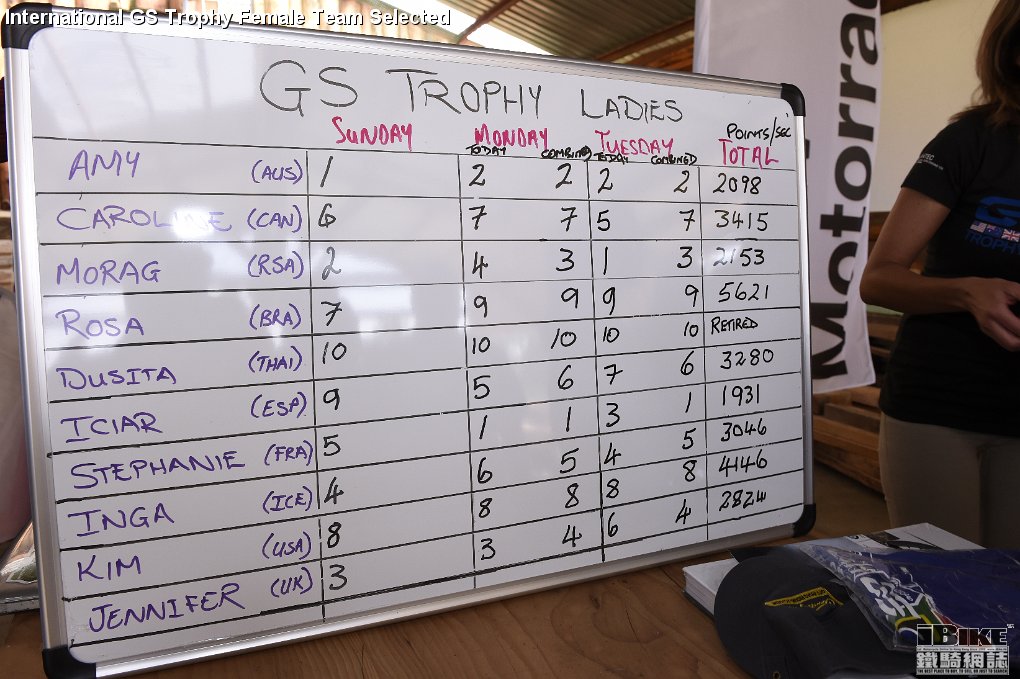 International GS Trophy Female Team Selected
GS TROPHY LADIES
SUNDAY MONDAY TUESDAY POINTS/SEC TOTAL
TODAY COMBINED TODAY COMBINED
AMY (AUS) 1 2 2 2 2 2098
CAROLINE (CAN) 6 7 7 5 7 3415
MORAG (RSA) 2 4 3 1 3 2153
ROSA (BRA) 7 9 9 9 9 5621
DUSITA (THAI) 10 10 10 10 10 RETIRED
ICIAR (ESP) 9 5 6 7 6 3280
STEPHANIE (FRA) 5 1 1 3 1 1931
INGA (ICE) 4 6 5 4 5 3046
KIM (USA) 8 8 8 8 8 4146
JENNIFER (UK) 3 3 4 6 4 2824
Motorra
GS
TROPHY
iBIKE
鐵騎網誌